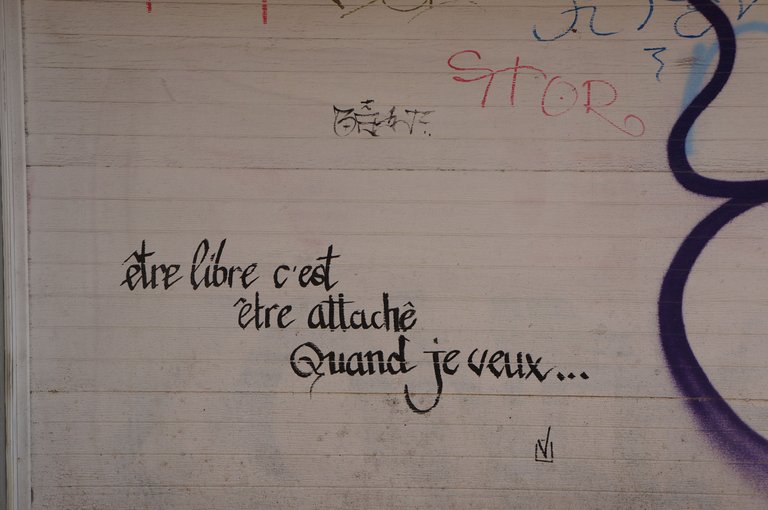 STOR
être libre c'est
être attachê
Quand je veux...